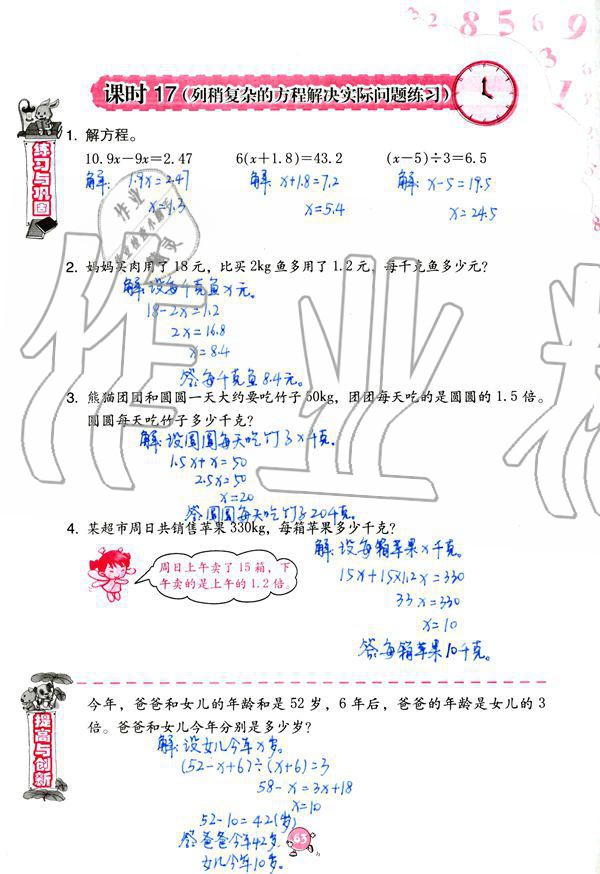 3 2 8 5 6 9
3
1
课时 17(列稍复杂的方程解决实际问题练习)
练习与巩固
1. 解方程。
10.9x-9x=2.47 6(x+1.8)=43.2 (x-5)÷3=6.5
解: 1.9x=2.47 解: x+1.8=7.2 解: x-5=19.5
x=1.3 x=5.4 x=24.5
2. 妈妈买肉用了18元,比买2kg鱼多用了1.2元。每千克鱼多少元?
解:设每千克鱼x元。
18-2x=1.2
2x=16.8
x=8.4
答:每千克鱼8.4元。
3. 熊猫团团和圆圆一天大约要吃竹子50kg,团团每天吃的是圆圆的1.5倍。
圆圆每天吃竹子多少千克?
解:设圆圆每天吃竹子x千克。
1.5x+x=50
2.5x=50
x=20
答:圆圆每天吃竹子20千克。
4. 某超市周日共销售苹果330kg,每箱苹果多少千克?
周日上午卖了15箱,下
午卖的是上午的1.2倍。
解:设每箱苹果x千克。
15x+15×1.2x=330
33x=330
x=10
答:每箱苹果10千克。
提高与创新
今年,爸爸和女儿的年龄和是52岁,6年后,爸爸的年龄是女儿的3
倍。爸爸和女儿今年分别是多少岁?
解:设女儿今年x岁。
(52-x+6)÷(x+6)=3
58-x=3x+18
x=10
52-10=42(岁)
答:爸爸今年42岁,
女儿今年10岁。
63
作业精